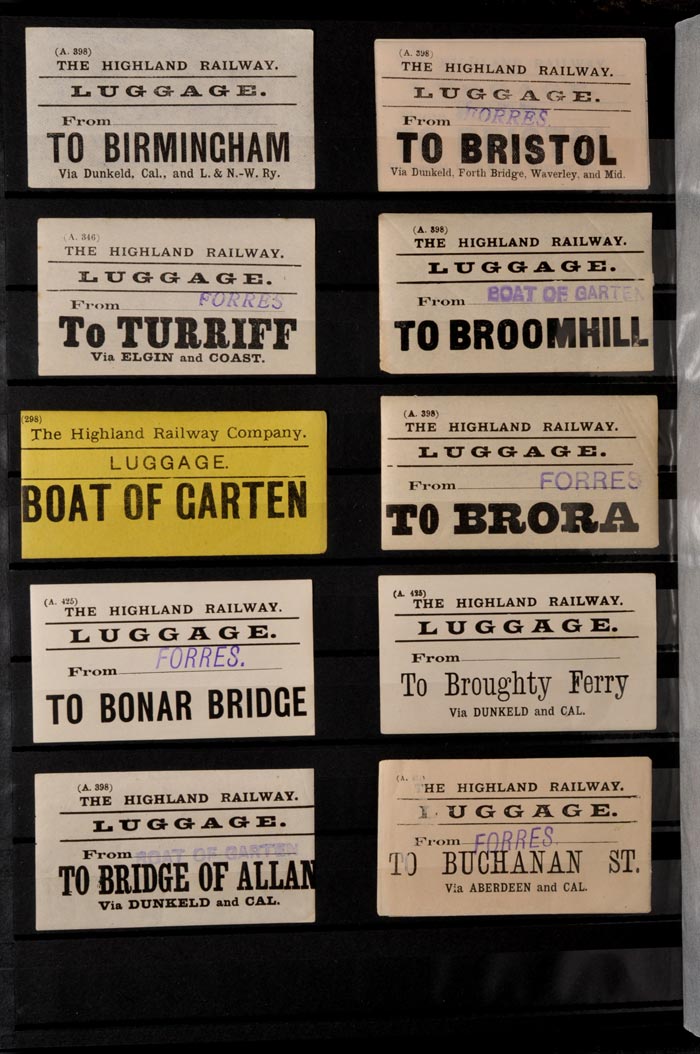 (A. 398)
THE HIGHLAND RAILWAY.
LUGGAGE.
From
TO BIRMINGHAM
Via Dunkeld, Cal., and L. & N.-W. Ry.
(A. 398)
THE HIGHLAND RAILWAY.
LUGGAGE.
From FORRES.
TO BRISTOL
Via Dunkeld, Forth Bridge, Waverley, and Mid.
(A. 346)
THE HIGHLAND RAILWAY.
LUGGAGE.
From FORRES
To TURRIFF
Via ELGIN and COAST.
(A. 398)
THE HIGHLAND RAILWAY.
LUGGAGE.
From BOAT OF GARTEN
TO BROOMHILL
(298)
The Highland Railway Company.
LUGGAGE.
BOAT OF GARTEN
(A. 398)
THE HIGHLAND RAILWAY.
LUGGAGE.
From FORRES
TO BRORA
(A. 425)
THE HIGHLAND RAILWAY.
LUGGAGE.
From FORRES.
TO BONAR BRIDGE
(A. 425)
THE HIGHLAND RAILWAY.
LUGGAGE.
From
To Broughty Ferry
Via DUNKELD and CAL.
(A. 398)
THE HIGHLAND RAILWAY.
LUGGAGE.
From BOAT OF GARTEN
TO BRIDGE OF ALLAN
Via DUNKELD and CAL.
(A.
THE HIGHLAND RAILWAY.
LUGGAGE.
From FORRES.
TO BUCHANAN ST.
Via ABERDEEN and CAL.